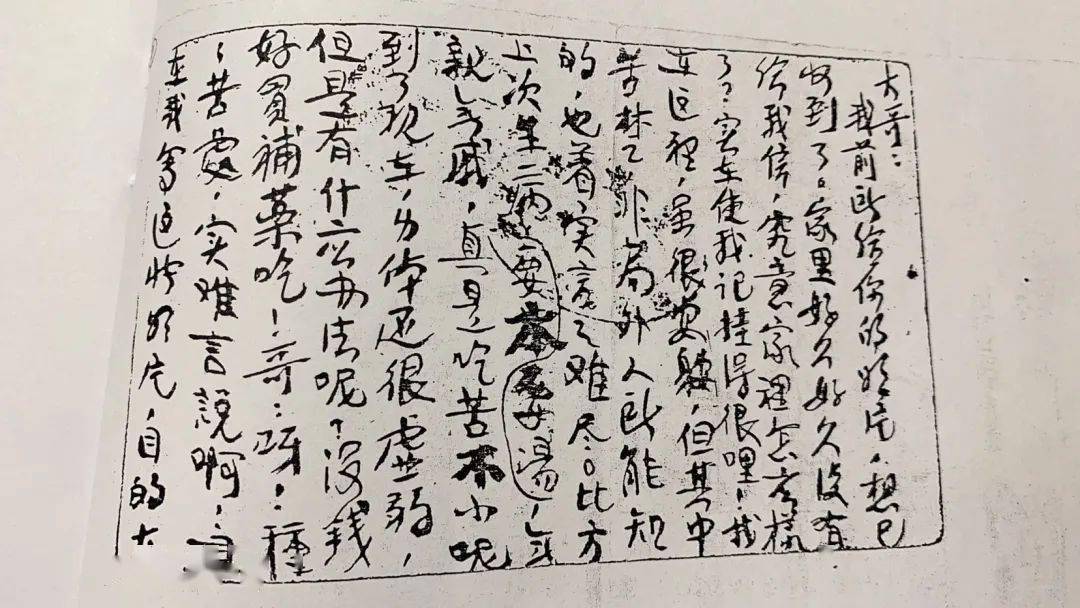 大哥：
我前所给你的明片，想已
收到了。家里好久好久没有
给我信，究竟家裡怎么样
了？实在使我记挂得很哩！我
在这裡，虽很安静，但其中
苦楚非局外人所能知
的，也着实言之难尽。比方
上次生病，要茶要湯，
親戚，真是吃苦不小呢
到了现在，身体还很虚弱，
但是有什么办法呢？没钱
好買補藥吃！哥：呀！種
苦處，实难言説啊！
在我写这张明片，目的